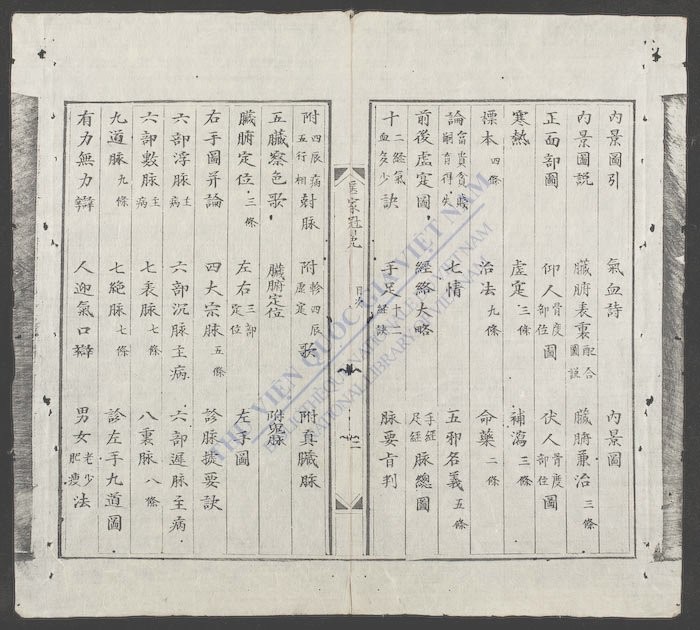 內景圖引 氣血詩 內景圖
內景圖說 臟腑表裏配合圖說 臟腑兼治三條
正面部圖 仰人骨度部位圖 伏人骨度部位圖
寒熱 虛寔三條 補瀉三條
標本四條 治法九條 命藥二條
論富貴貧賤嗣育得失 七情 五邪名義五條
前後虛寔圖 經絡大略 手經足經脉總圖
十二經氣血多少訣 手足十二 脉要肯判
目次
附四辰病五行相尅脉 附幹四辰虛寔歌 附真臟脉
五臟察色歌 臟腑定位 附鬼脉
臟腑定位三條 左右三部定位 左手圖
右手圖并論 四大宗脉五條 診脉提要訣
六部浮脉主病 六部沉脉主病 六部遲脉主病
六部數脉主病 七表脉七條 八裏脉八條
九道脉九條 七絕脉七條 診左手九道圖
有力無力辯 人迎氣口辯 男女老少肥瘦法
THƯ VIỆN QUỐC GIA VIỆT NAM
NATIONAL LIBRARY OF VIETNAM